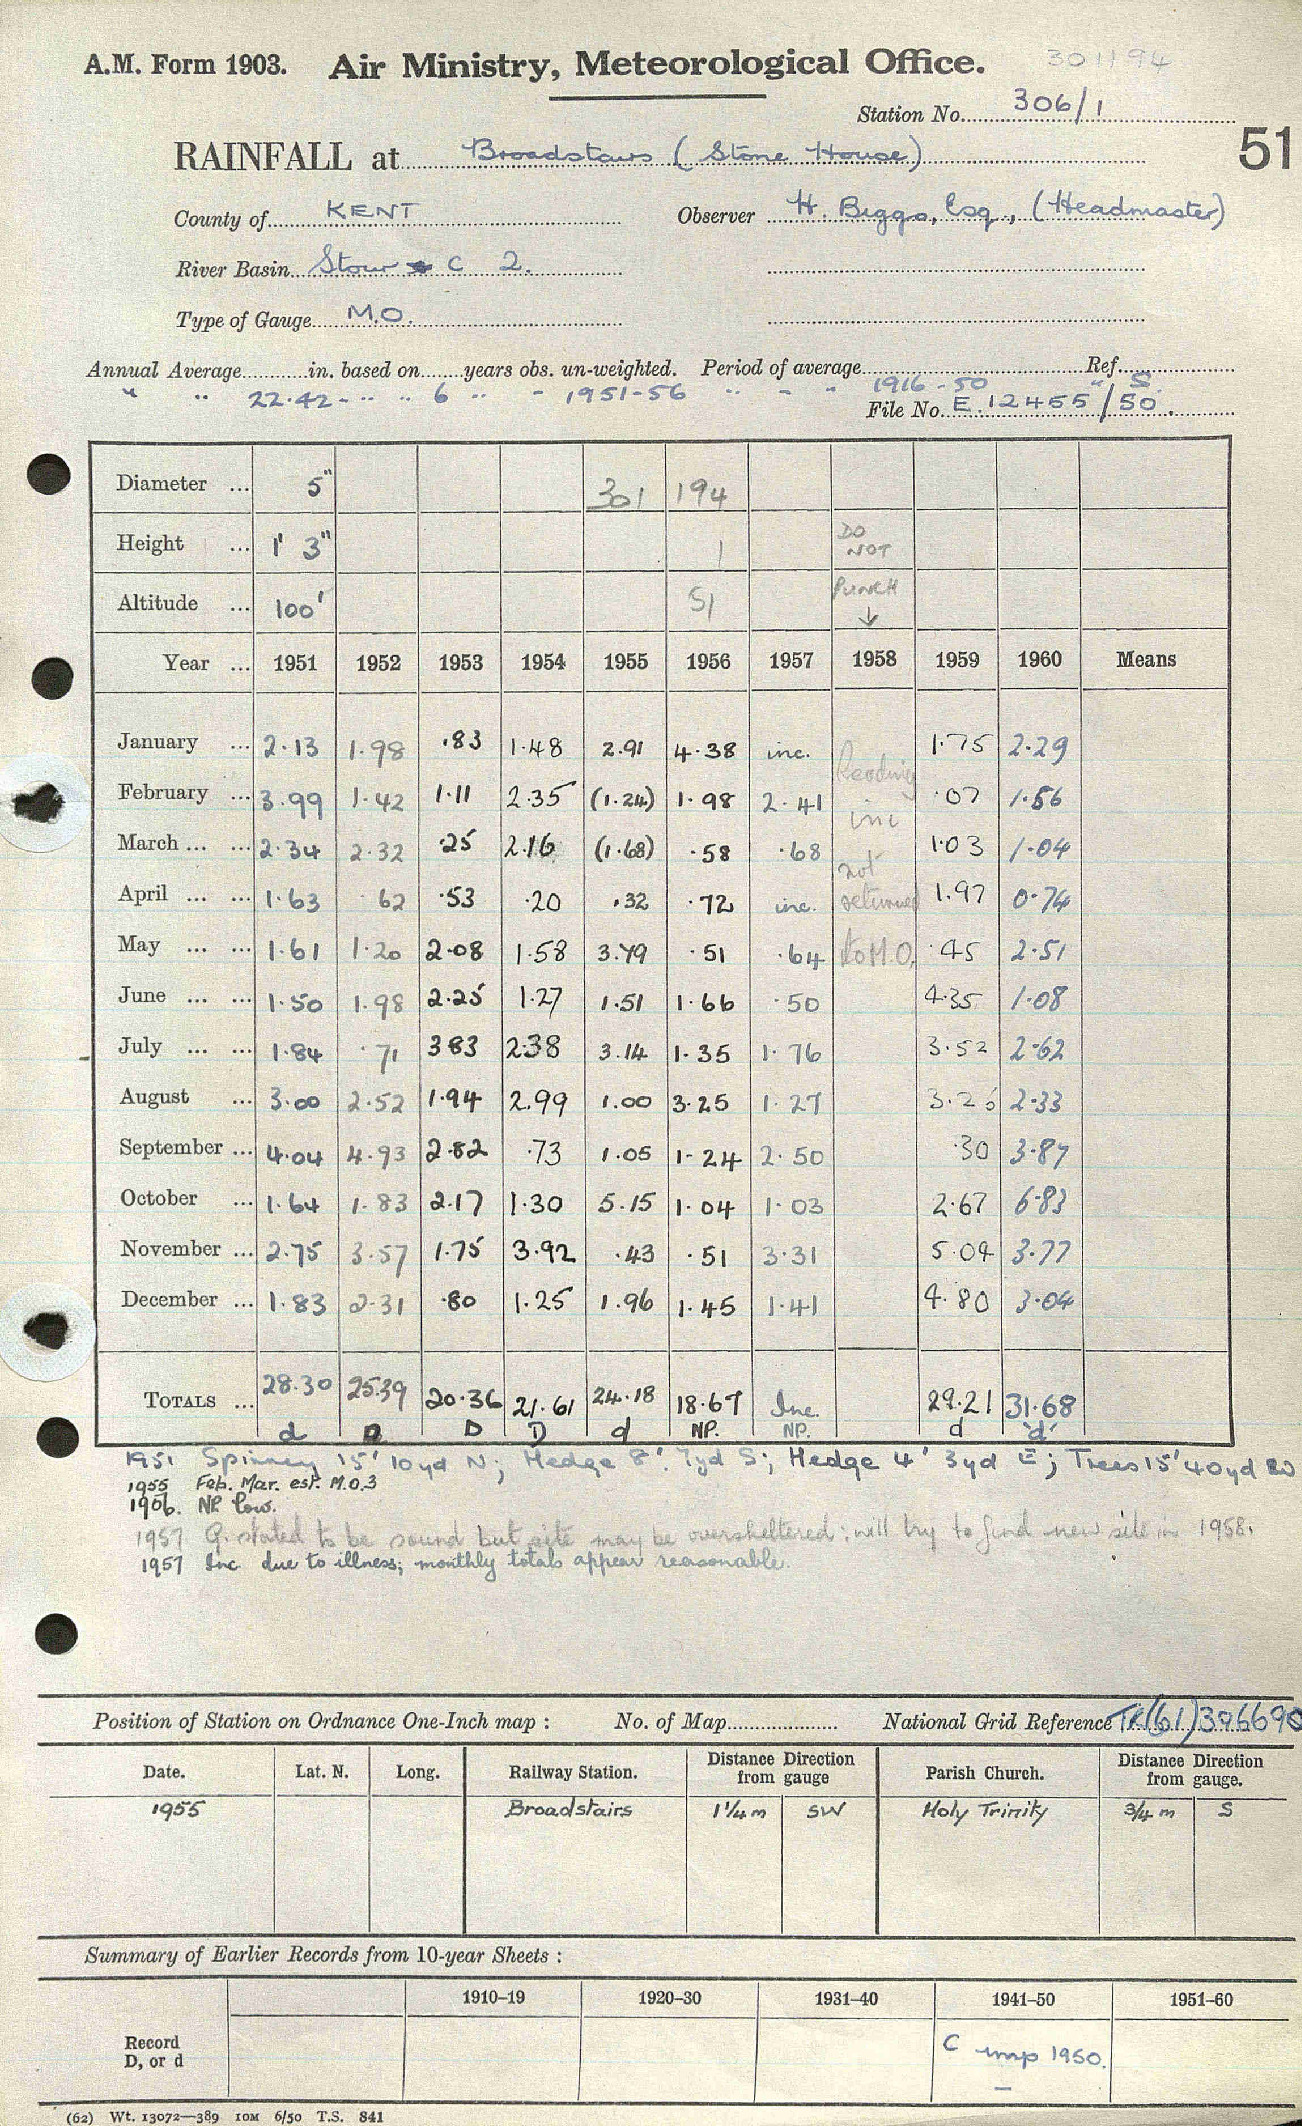 A.M. Form 1903. Air Ministry, Meteorological Office. 301194
Station No. 306/1
51
RAINFALL at Broadstairs (Stone House)
County of KENT Observer H. Biggs, Esq., (Headmaster)
River Basin Stour C 2.
Type of Gauge M.O.
Annual Average in. based on years obs. un-weighted. Period of average Ref.
" " 22.42 - " " 6 " - 1951-56 " - " 1916-50 " S.
File No. E.12455/50.
Diameter ... 5" 301 194
Height ... 1' 3" 1 DO NOT
Altitude ... 100' 51 PUNCH ↓
Year ... 1951 1952 1953 1954 1955 1956 1957 1958 1959 1960 Means
January ... 2.13 1.98 .83 1.48 2.91 4.38 inc. Readings 1.75 2.29
February ... 3.99 1.42 1.11 2.35 (1.24) 1.98 2.41 inc .07 1.56
March ... ... 2.34 2.32 .25 2.16 (1.68) .58 .68 not 1.03 1.04
April ... ... 1.63 .62 .53 .20 .32 .72 inc. returned 1.97 0.74
May ... ... 1.61 1.20 2.08 1.58 3.79 .51 .64 to M.O. .45 2.51
June ... ... 1.50 1.98 2.25 1.27 1.51 1.66 .50 4.35 1.08
July ... ... 1.84 .71 3.83 2.38 3.14 1.35 1.76 3.52 2.62
August ... 3.00 2.52 1.94 2.99 1.00 3.25 1.27 3.26 2.33
September ... 4.04 4.93 2.82 .73 1.05 1.24 2.50 .30 3.87
October ... 1.64 1.83 2.17 1.30 5.15 1.04 1.03 2.67 6.83
November ... 2.75 3.57 1.75 3.92 .43 .51 3.31 5.04 3.77
December ... 1.83 2.31 .80 1.25 1.96 1.45 1.41 4.80 3.04
TOTALS ... 28.30 25.39 20.36 21.61 24.18 18.67 Inc. 29.21 31.68
d D D D d NP. NP. d 'd'
1951 Spinney 15' 10yd N; Hedge 8' 7yd S; Hedge 4' 3yd E; Trees 15' 40yd
1955 Feb. Mar. est. M.O.3
1956. NP low.
1957 G. stated to be sound but site may be oversheltered: will try to find new site in 1958.
1957 Inc due to illness; monthly totals appear reasonable.
Position of Station on Ordnance One-Inch map : No. of Map National Grid Reference TR(61)396690
Date. Lat. N. Long. Railway Station. Distance Direction from gauge Parish Church. Distance Direction from gauge.
1955 Broadstairs 1¼ m SW Holy Trinity ¾ m S
Summary of Earlier Records from 10-year Sheets :
1910–19 1920–30 1931–40 1941–50 1951–60
Record D, or d C 1950.
(62) Wt. 13072—389 10M 6/50 T.S. 841